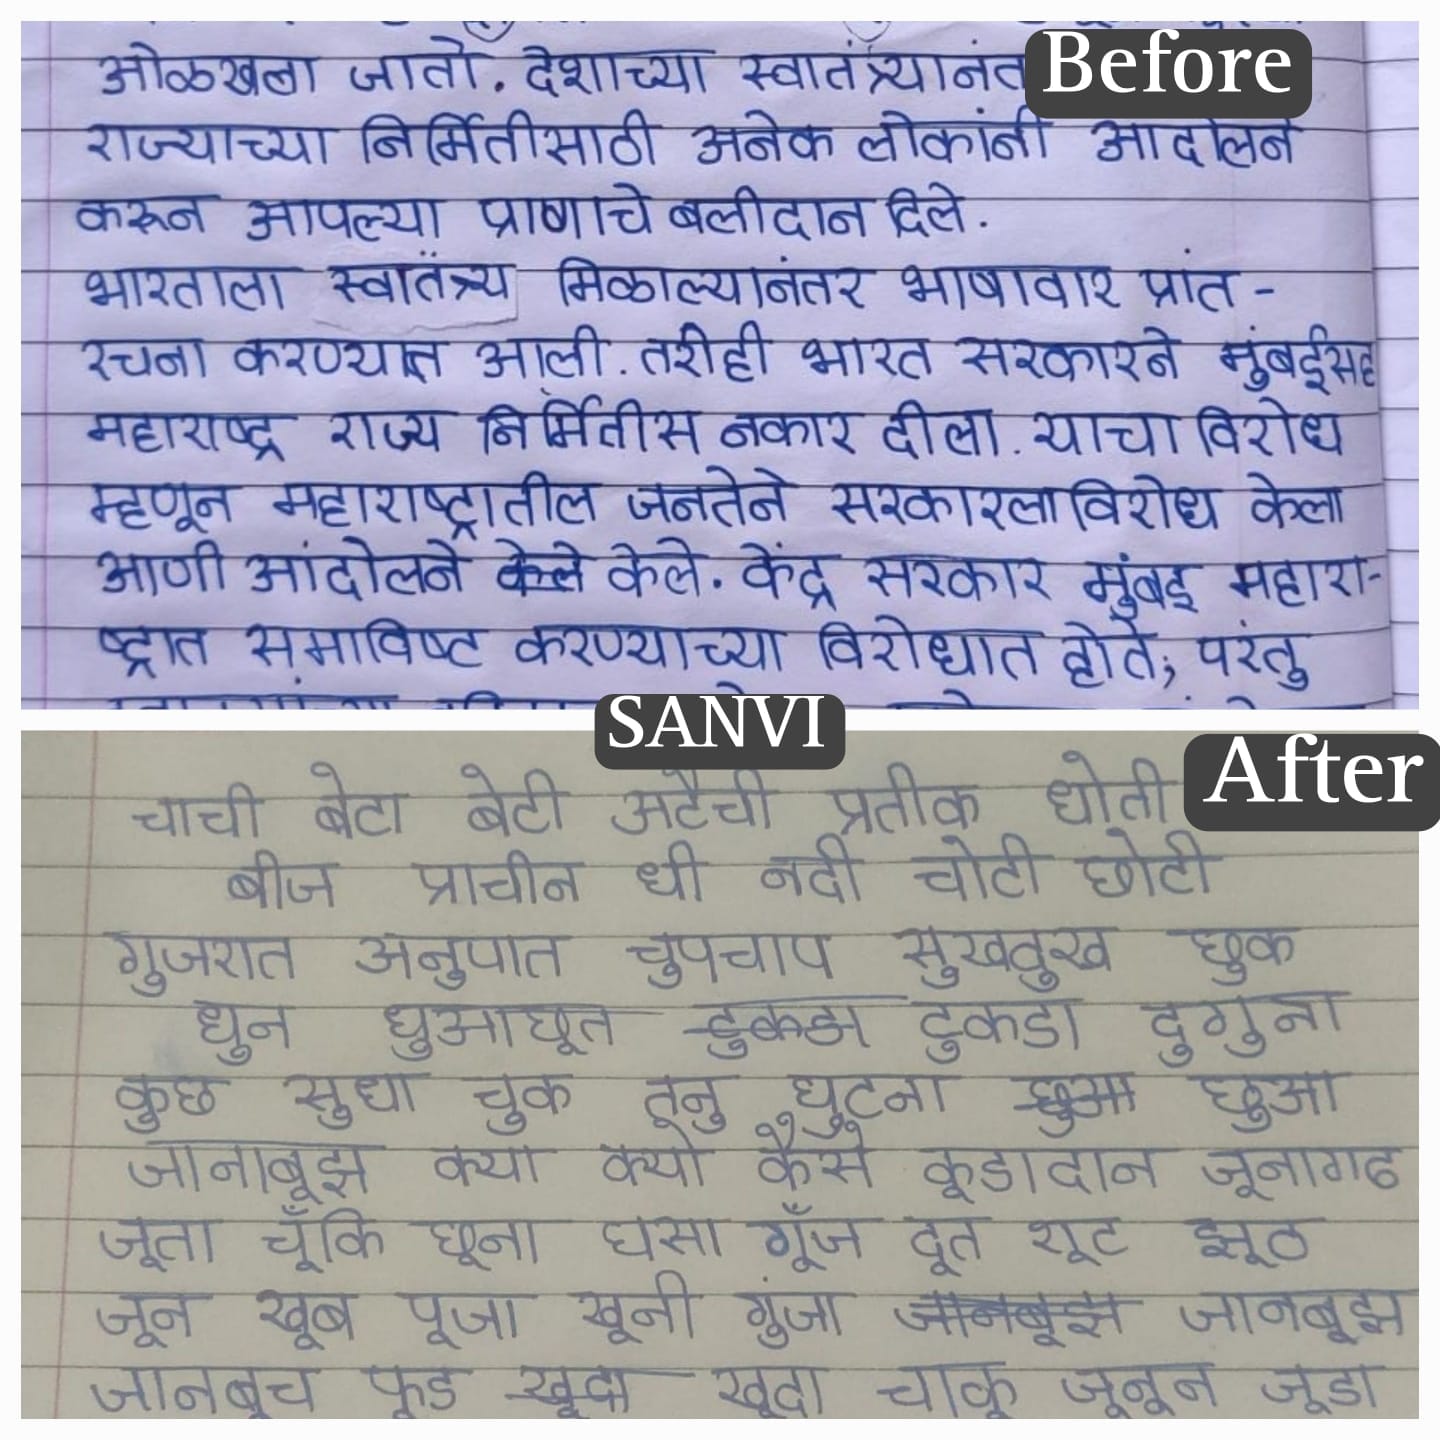 ओळखला जातो. देशाच्या स्वातंत्र्यानंत
Before
राज्याच्या निर्मितीसाठी अनेक लोकांनी आदोलन
करून आपल्या प्राणाचे बलीदान दिले.
भारताला स्वातंत्र्य मिळाल्यानंतर भाषावार प्रांत -
रचना करण्यात आली. तरीही भारत सरकारने मुंबईसह
महाराष्ट्र राज्य निर्मितीस नकार दीला. याचा विरोध
म्हणून महाराष्ट्रातील जनतेने सरकारला विरोध केला
आणी आंदोलने केले केले. केंद्र सरकार मुंबइ महारा-
ष्ट्रात समाविष्ट करण्याच्या विरोधात होते; परंतु
SANVI
After
चाची बेटा बेटी अटैची प्रतीक धोती
बीज प्राचीन धी नदी चोटी छोटी
गुजरात अनुपात चुपचाप सुखदुख छुक
धुन धुआछूत टुकडा टुकडा दुगुना
कुछ सुधा चुक तूनु घुटना छुआ छुआ
जानाबूझ क्या क्यो कैसे कूडादान जूनागढ
जूता चूँकि छूना घसा गूँज दूत शूट झूठ
जून खूब पूजा खूनी गुंजा जानबूझ जानबूझ
जानबूच फूड खूदा खूदा चाकू जूनून जूडा